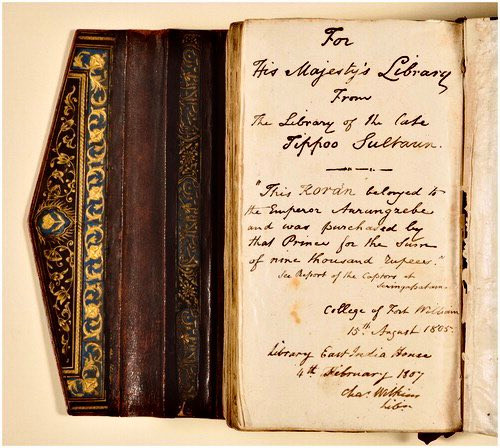 For
His Majesty's Library
From
The Library of the Late
Tippoo Sultaun.
"This Korân belonged to
the Emperor Aurungzebe
and was purchased by
that Prince for the Sum
of nine thousand rupees."
See Report of the Captors at
Seringapatam.
College of Fort William
15th August 1805.
Library East India House
4th February 1807
Chas. Wilkins
Libn.